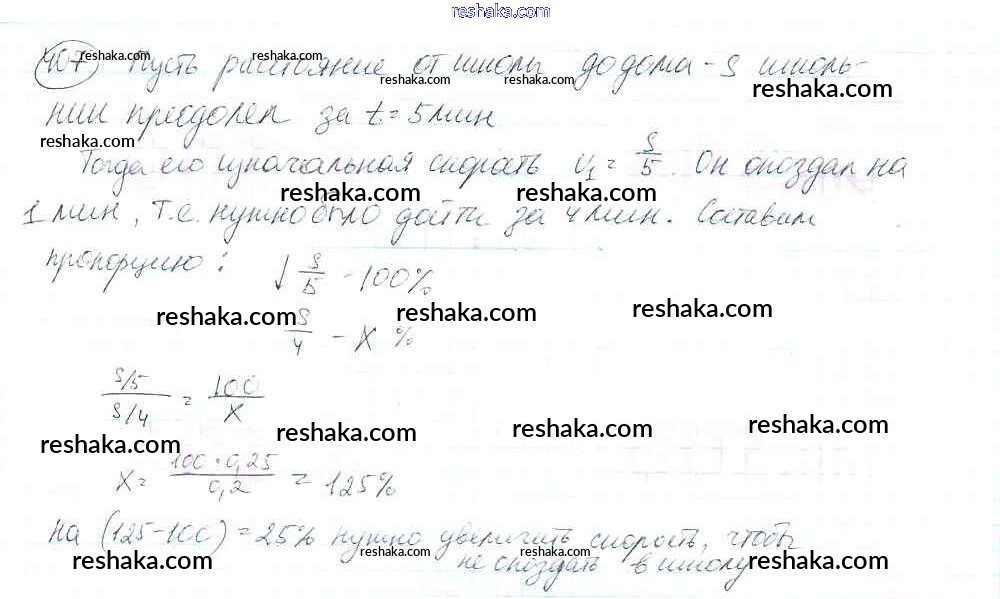 reshaka.com
407 Пусть расстояние от школы до дома - S школь-
ник преодолел за t = 5 мин
Тогда его изначальная скорость υ₁ = S/5. Он опоздал на
1 мин, т.е. нужно было дойти за 4 мин. Составим
пропорцию: ↓ S/5 - 100%
S/4 - x %
(S/5)/(S/4) = 100/x
x = (100·0,25)/0,2 = 125%
на (125-100) = 25% нужно увеличить скорость, чтобы
не опоздать в школу
reshaka.com reshaka.com reshaka.com reshaka.com reshaka.com
reshaka.com
reshaka.com reshaka.com reshaka.com
reshaka.com reshaka.com reshaka.com
reshaka.com reshaka.com reshaka.com reshaka.com
reshaka.com reshaka.com reshaka.com reshaka.com